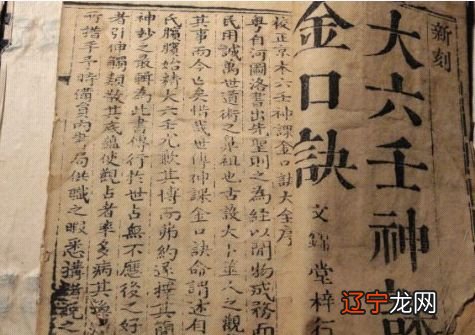 新刻
大六壬神
金口訣
文錦堂梓行
校正京本六壬神課金口訣大全序
粵自河圖洛書出先聖則之為經以開物成務而
民用誠萬世道術之鼻祖也古設大卜筮人之官
其事而今已矣惜幾世傳神課金口訣命謂述有
氏臏始精大六壬尤歉其博而弗約遂擇其簡
神抄之最輯為此書傳行於世占無不應後之好
者引伸觸類敷其底蘊使觀占者率多病其逸
所措手予時備員內事局供職之暇悉搆諸
辽宁龙网